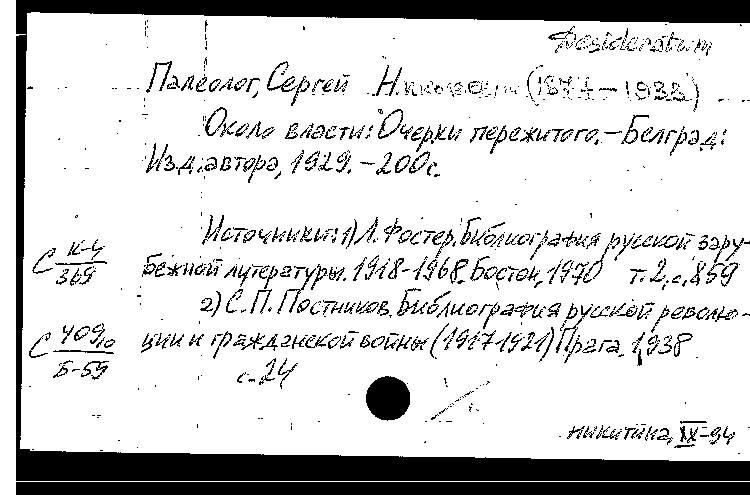 Desideratum
Палеолог, Сергей Николаевич (1877-1933)
Около власти: Очерки пережитого. - Белград:
Изд. автора, 1929. - 200с.
Источники: 1) Л. Фостер. Библиография русской зару-
С К-4/369 бежной литературы. 1918-1968. Бостон, 1970 т. 2, с. 859
2) С. П. Постников. Библиография русской револю-
С 409/Б-59 ции и гражданской войны (1917-1921) Прага, 1938
с. 24
никитина, IX-94